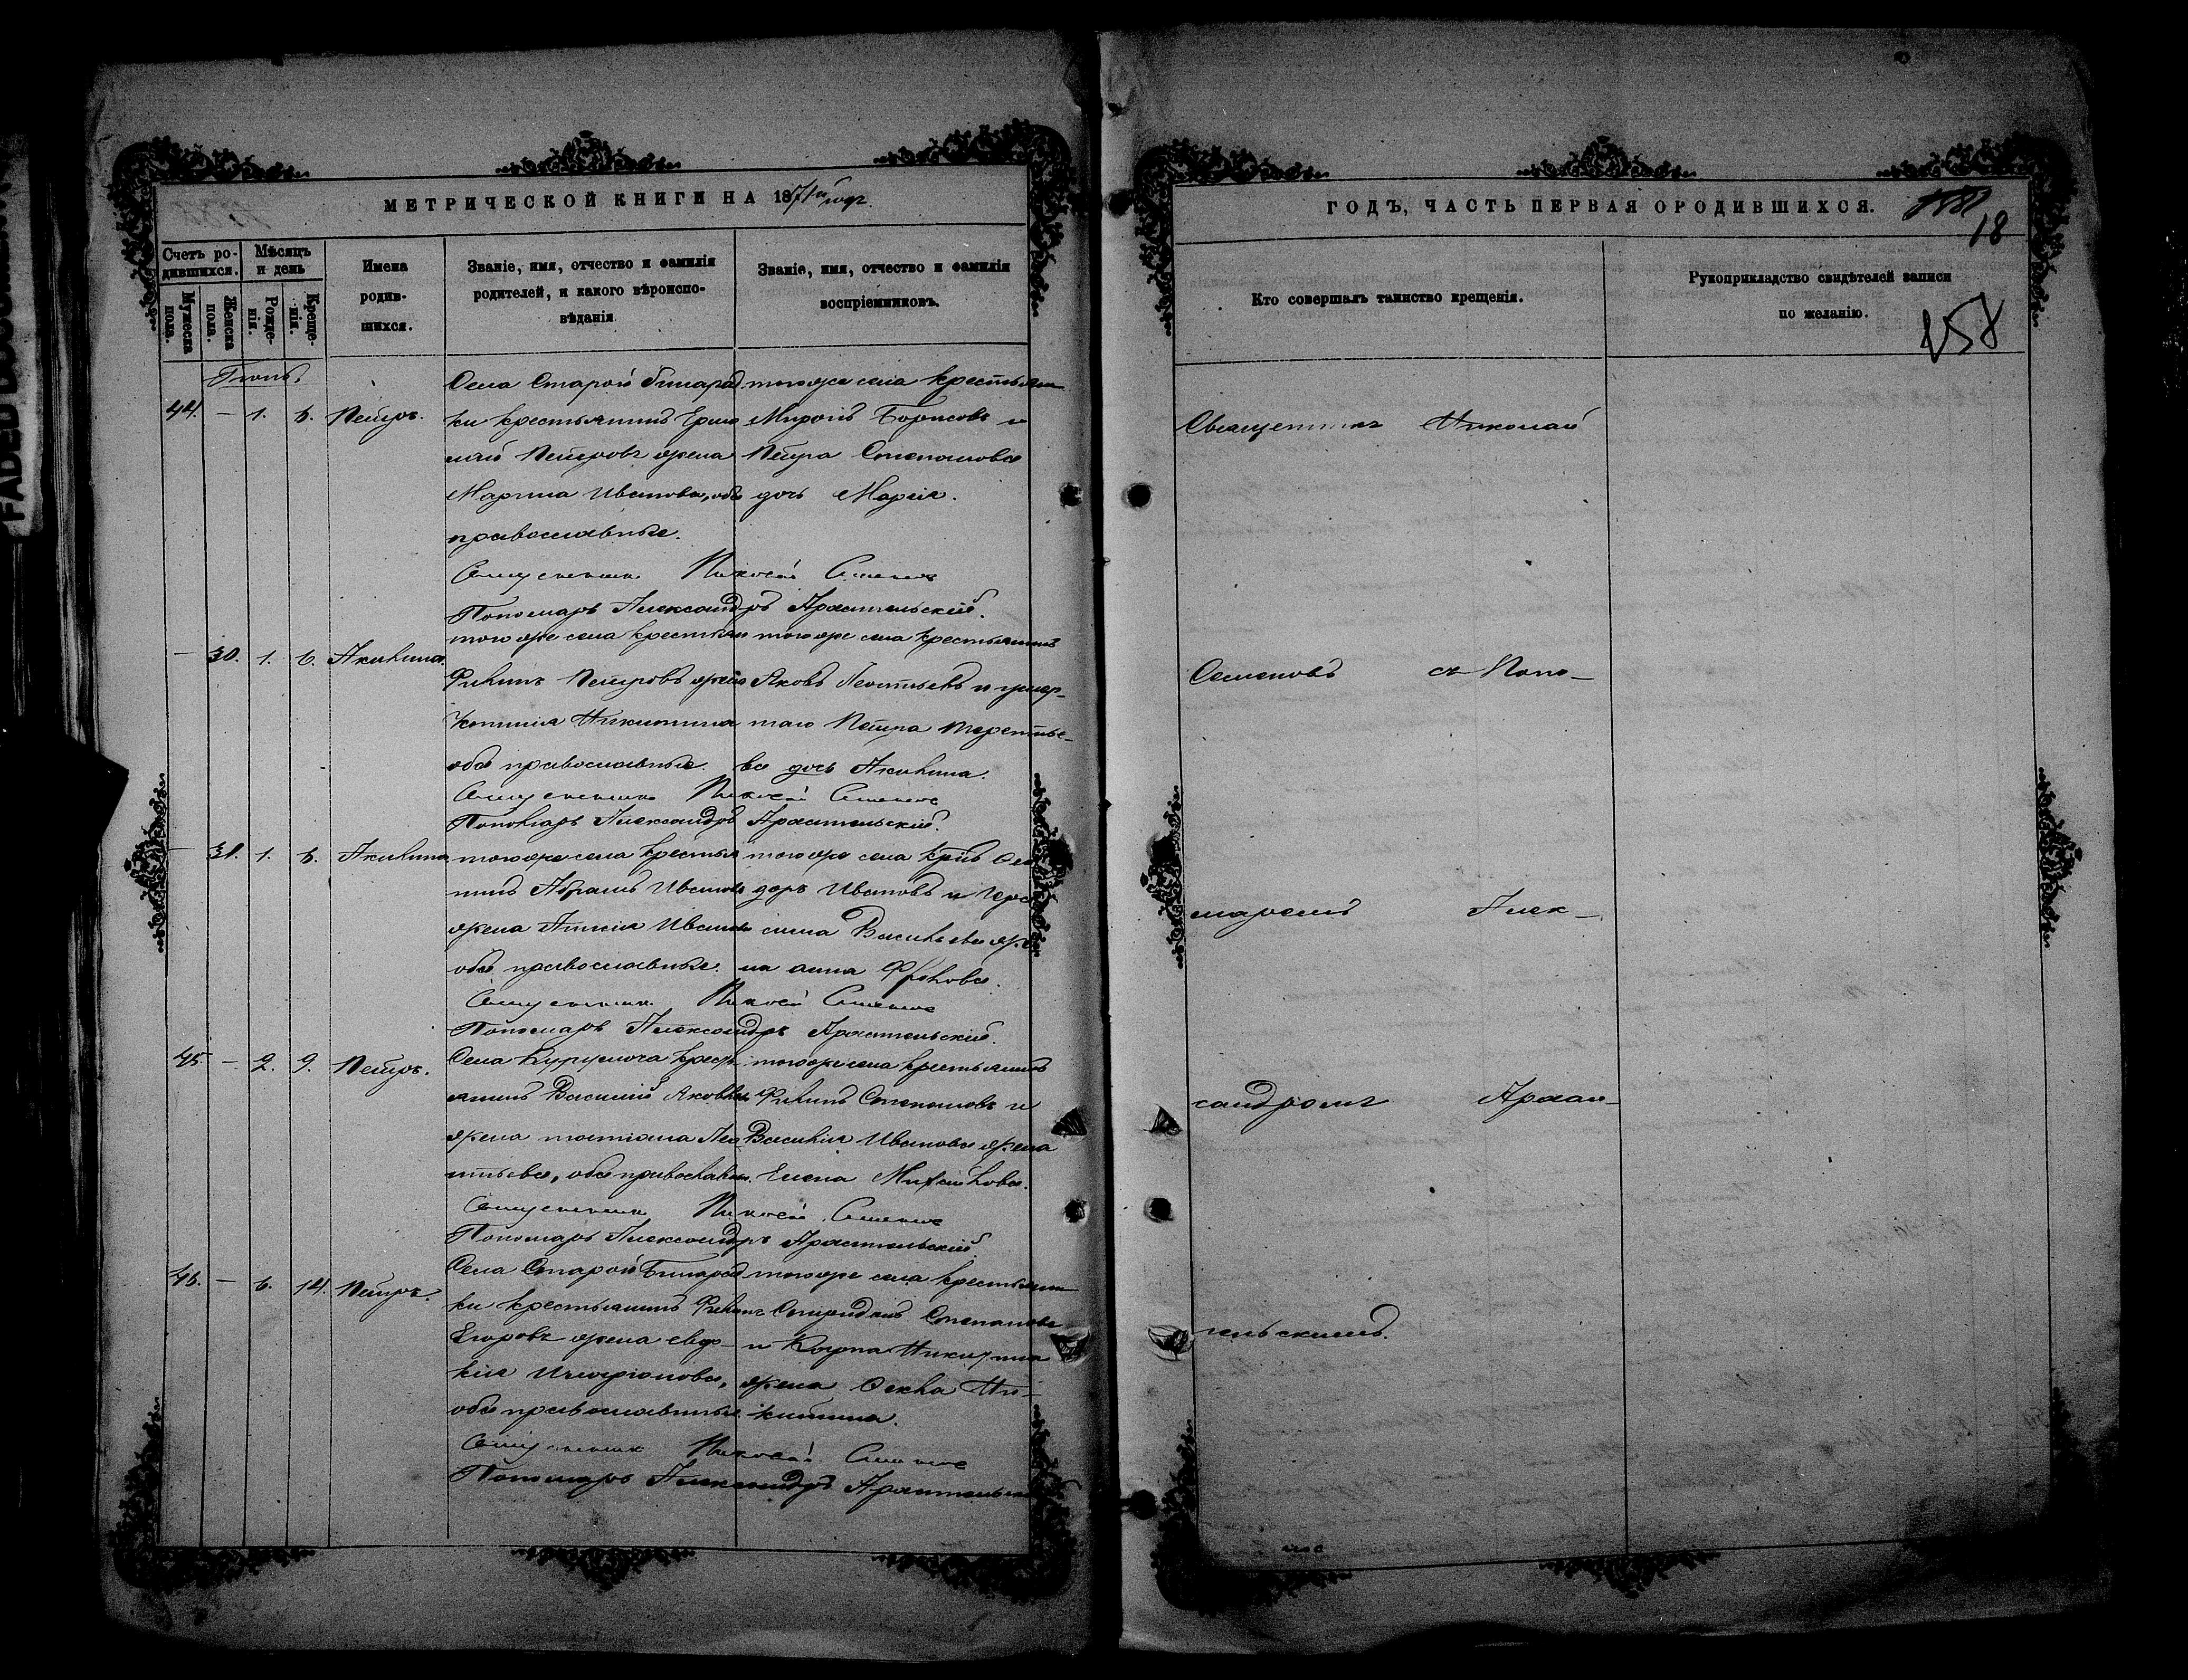 FADED DOCUMENT
МЕТРИЧЕСКОЙ КНИГИ НА 1871й годъ.
Счетъ ро-
дившихся.
Мѣсяцъ
и день
Мужеска
пола.
Женска
пола.
Рожде-
нія.
Креще-
нія.
Имена
родив-
шихся.
Званіе, имя, отчество и фамилія
родителей, и какого вѣроиспо-
вѣданія
Званіе, имя, отчество и фамилія
воспріемниковъ.
44. — 1. 6. Петръ.
Села Старой Бинарад
ки крестьянинъ Ермо
лай Петровъ жена
Марина Иванова, оба
православные.
того же села крестьян
Миронъ Борисовъ и
Петра Степанова
дочь Марія.
Священникъ Николай Семеновъ
Пономарь Александръ Архангельскій.
— 30. 1. 6. Акилина.
того же села крестьян
Филипъ Петровъ жена
Никитина
оба православные.
того же села крестьянинъ
Яковъ Леонтьевъ и умер-
таго Петра Терентье-
ва дочь Акилина.
Священникъ Николай Семеновъ
Пономарь Александръ Архангельскій.
— 31. 1. 6. Акилина
того же села крестья
нинъ Абрамъ Иванов
жена Анисія Иванов
оба православные.
того же села
доръ Ивановъ и
сима Васильева же
на Анна Фролова.
Священникъ Николай Семеновъ
Пономарь Александръ Архангельскій.
45. — 2. 9. Петръ.
Села Курумоча крест
янинъ Василій Яковлев
жена Татіана Лео
нтьева, оба православн.
того же села крестьянинъ
Филипъ Степановъ и
Василія Иванова жена
Елена Михайлова.
Священникъ Николай Семеновъ
Пономарь Александръ Архангельскій
46. — 6. 14. Петръ.
Села Старой Бинарад
ки крестьянинъ Филипъ
Егоровъ жена Евдо-
кія
оба православные
того же села крестьянин
Спиридонъ Степановъ
и Карпа Никитина
жена Фекла Ни-
китина.
Священникъ Николай Семеновъ
Пономарь Александръ Архангельскій
ГОДЪ, ЧАСТЬ ПЕРВАЯ О РОДИВШИХСЯ.
18
158
Кто совершалъ таинство крещенія.
Рукоприкладство свидѣтелей записи
по желанію.
Священникъ Николай
Семеновъ съ Поно-
маремъ Алек-
сандромъ Архан-
гельскимъ.